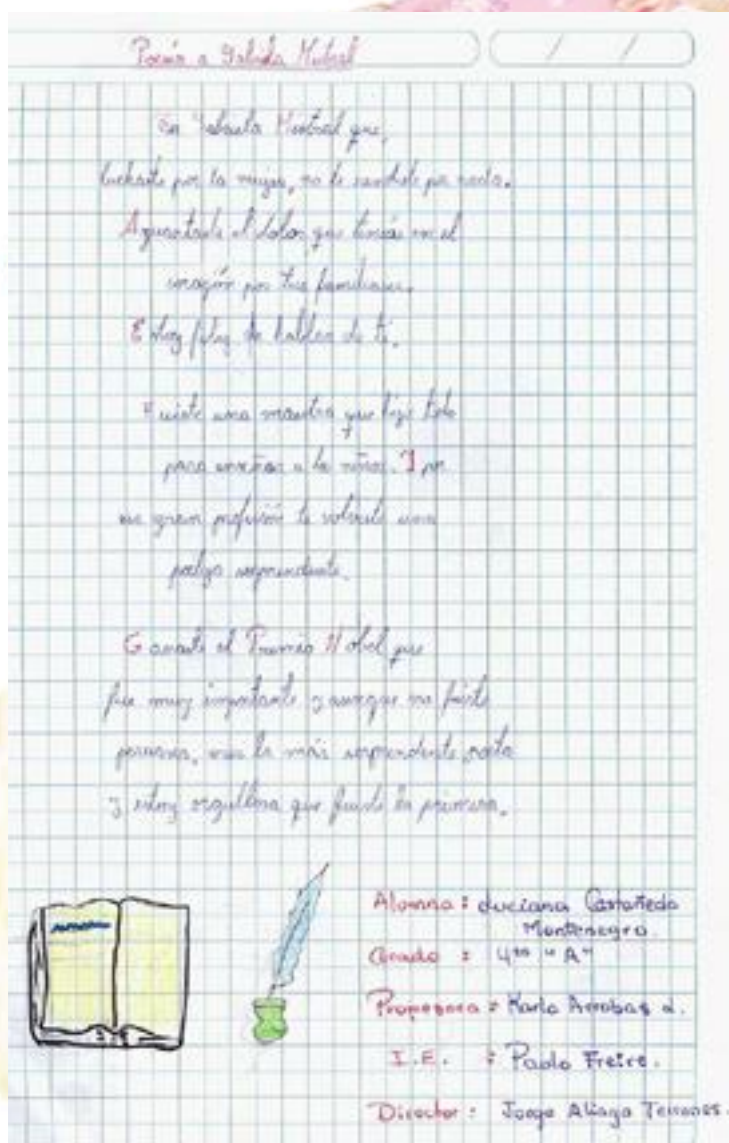 Poesía a Gabriela Mistral
/ /
Gabriela Mistral que,
luchaste por la mujer, no te rendiste por nada.
Aguantaste el dolor que tenías en el
corazón por tus familiares.
Estoy feliz de hablar de ti.
Fuiste una maestra que hizo todo
para enseñar a los niños. Y por
gran profesión te volviste una
sorprendente.
Ganaste el Premio Nobel que
fue muy importante y aunque no fuiste
peruana, eres la más sorprendente poeta
y estoy orgullosa que fuiste la primera.
Alumna : Luciana Castañeda
Montenegro.
Grado : 4to "A"
Profesora : Karla
I.E. : Paolo Freire.
Director : Jorge Aliaga